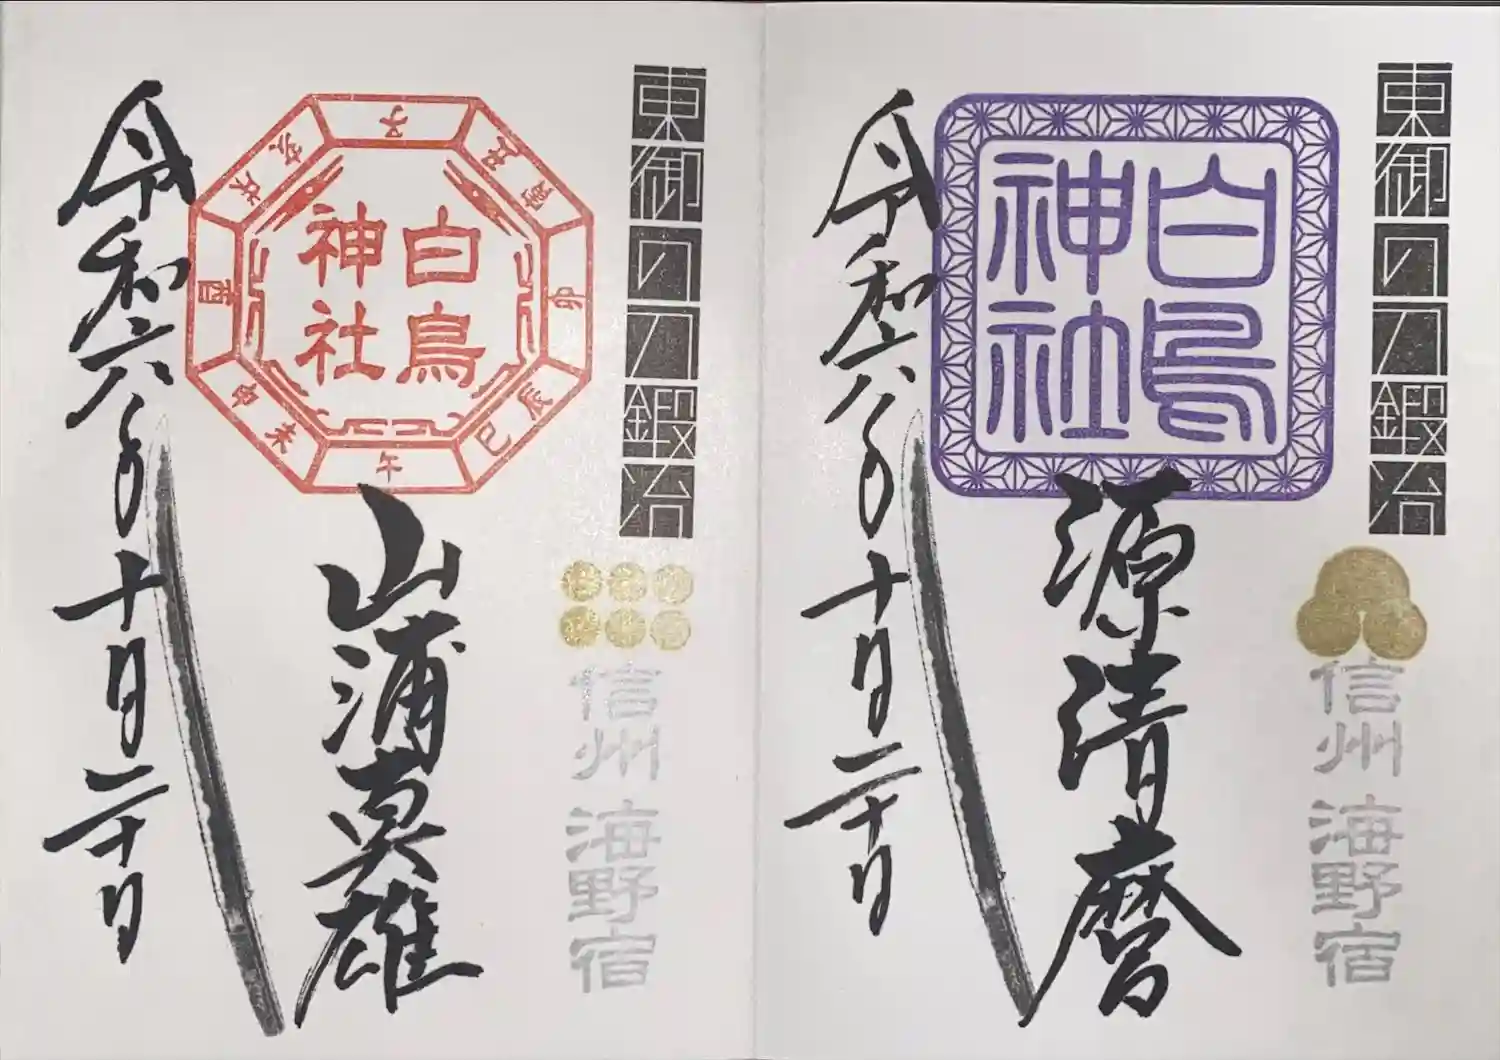 東御の刀鍛冶
信州 海野宿
白鳥
神社
源清麿
令和六年十月二十日
東御の刀鍛冶
信州 海野宿
白鳥
神社
子丑寅卯辰巳午未申酉戌亥
山浦真雄
令和六年十月二十日